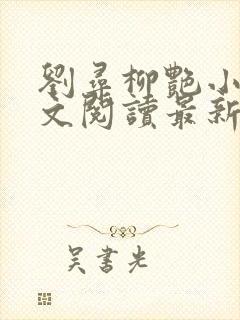 劉尋柳艷小
文閱讀最新
吴書光